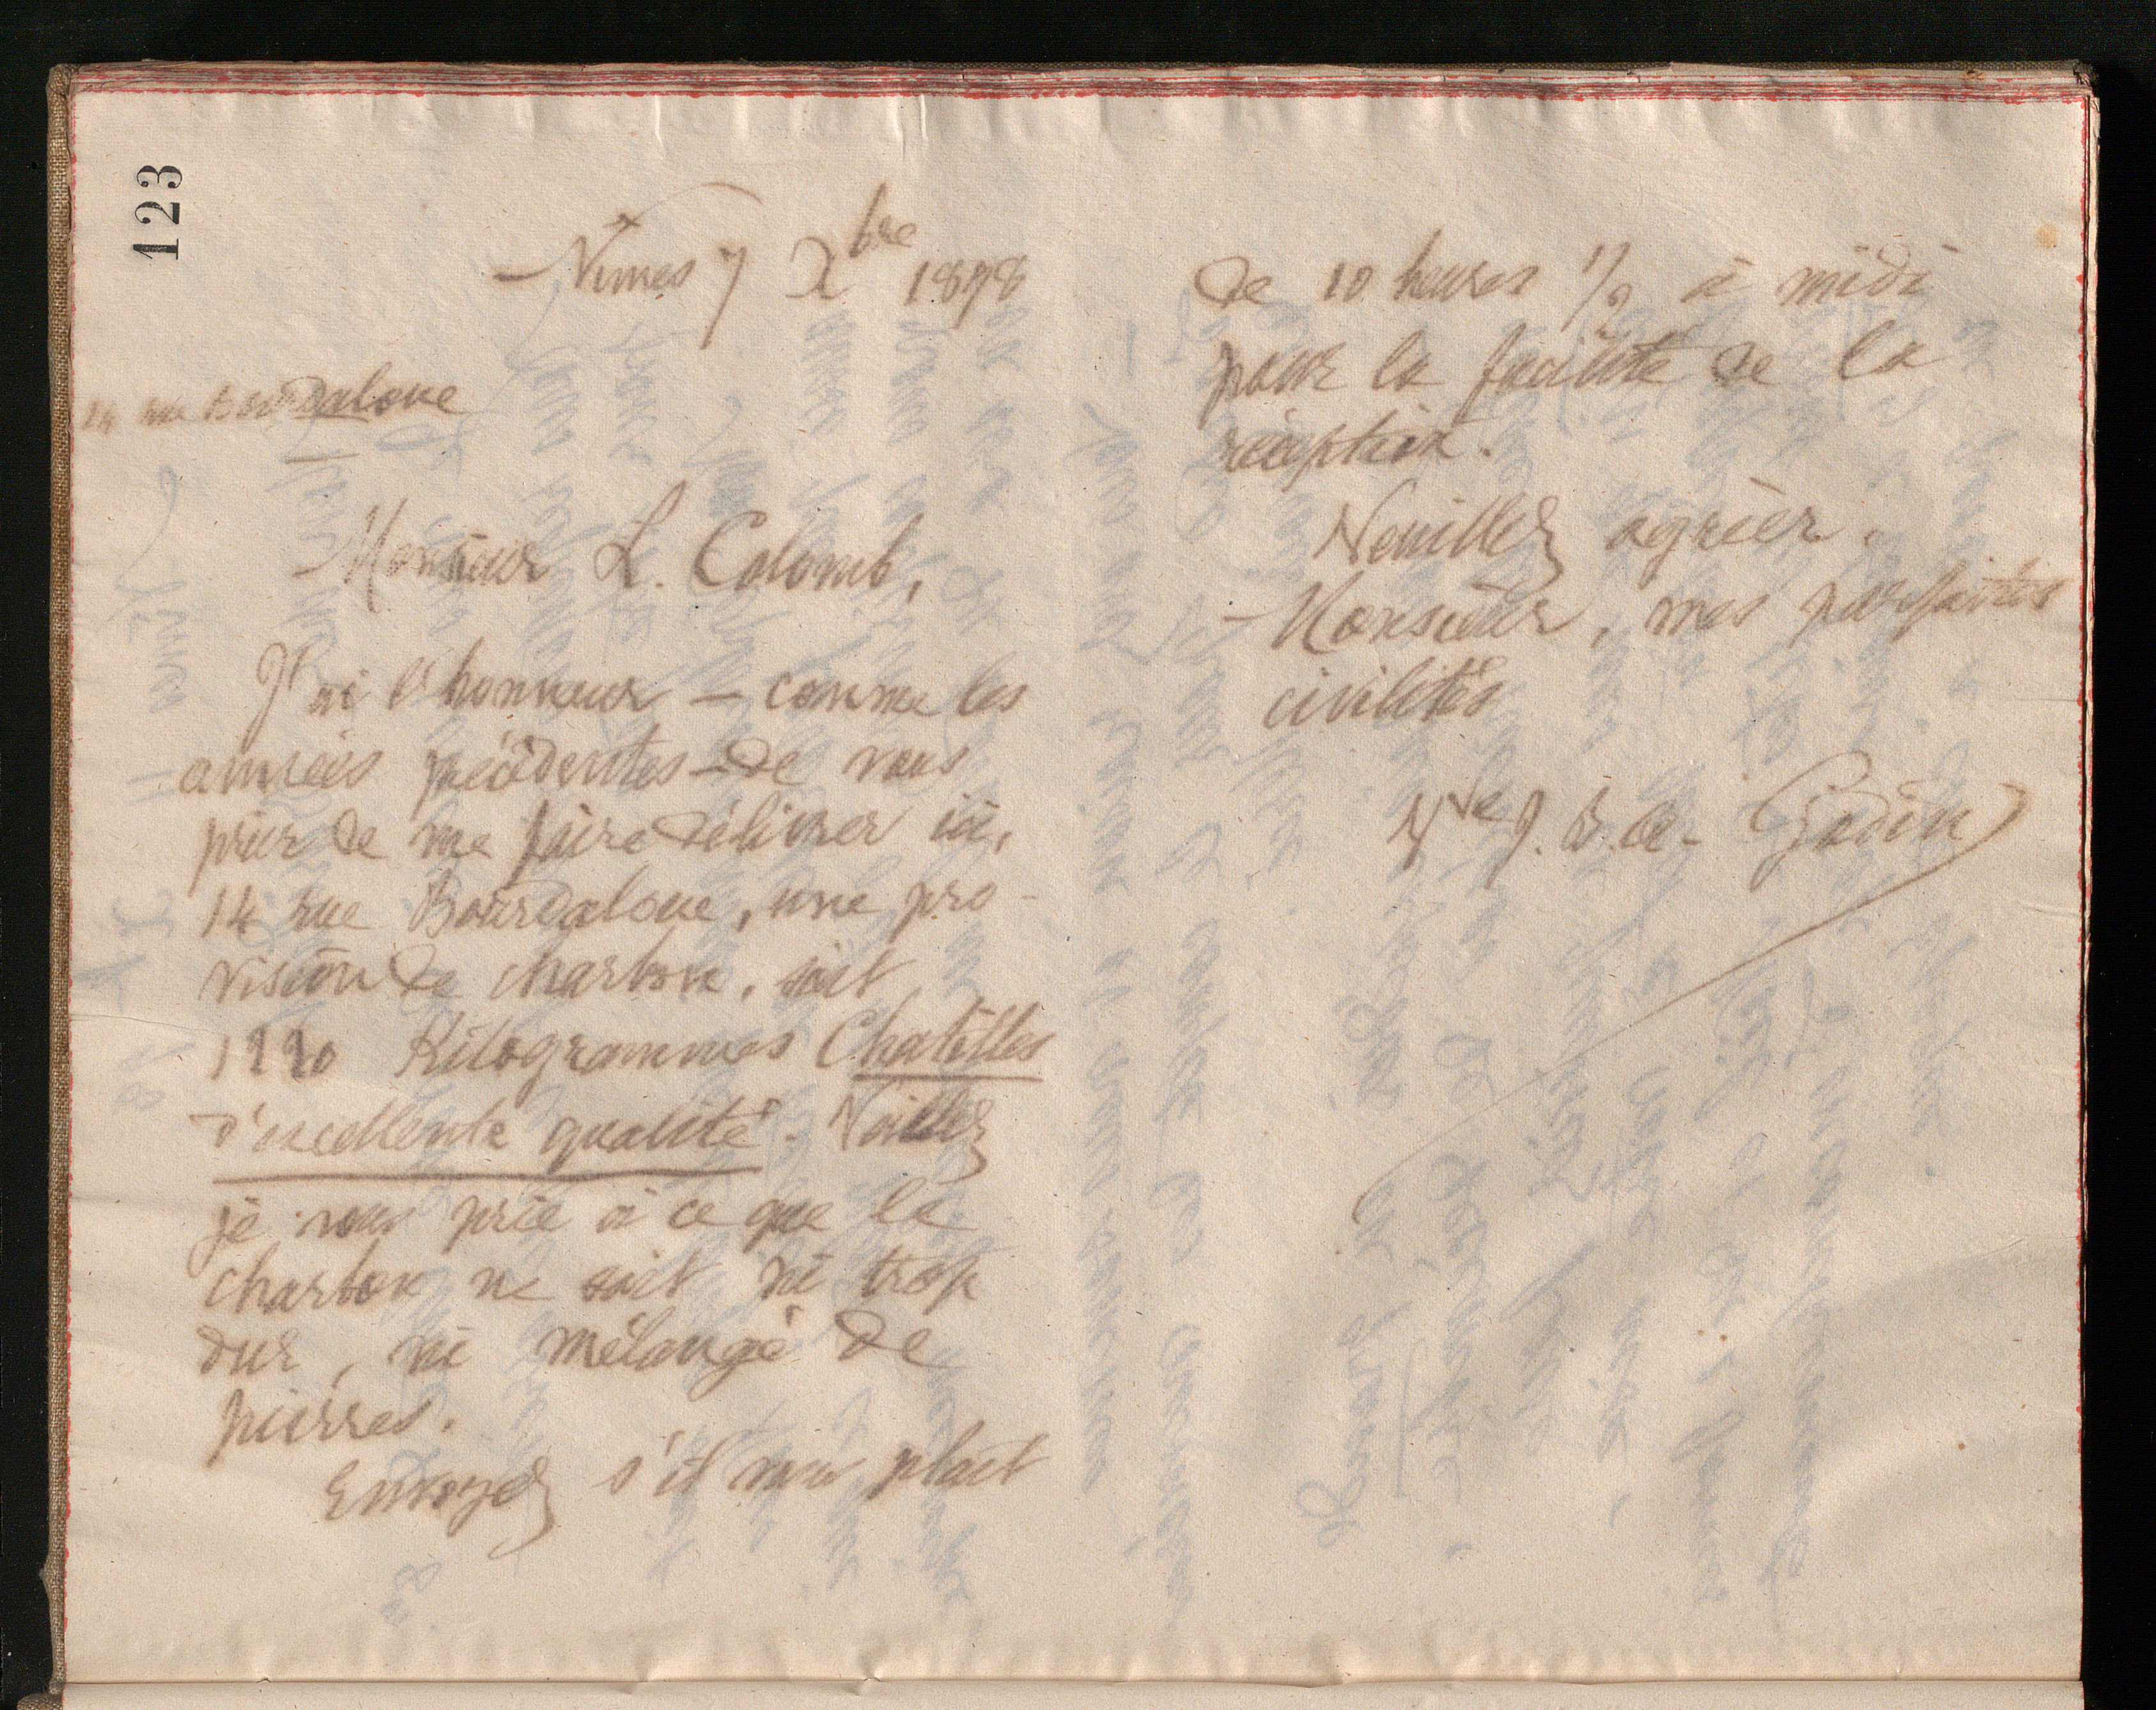 123
Nimes 7 Xbre 1898
14 rue Bourdaloue
Monsieur L. Colomb,
J'ai l'honneur – comme les
années précédentes – de vous
prier de me faire délivrer ici,
14 rue Bourdaloue, une pro-
vision de charbon, soit
Kilogrammes Chatilles
d'excellente qualité. Veillez
je vous prie à ce que le
charbon ne soit ni trop
dur, ni mélangé de
pierres.
Envoyez s'il vous plait
de 10 heures 1/2 à midi
pour la facilité de la
réception.
Veuillez agréer,
Monsieur, mes parfaites
civilités
Vve J. B. A. Godin